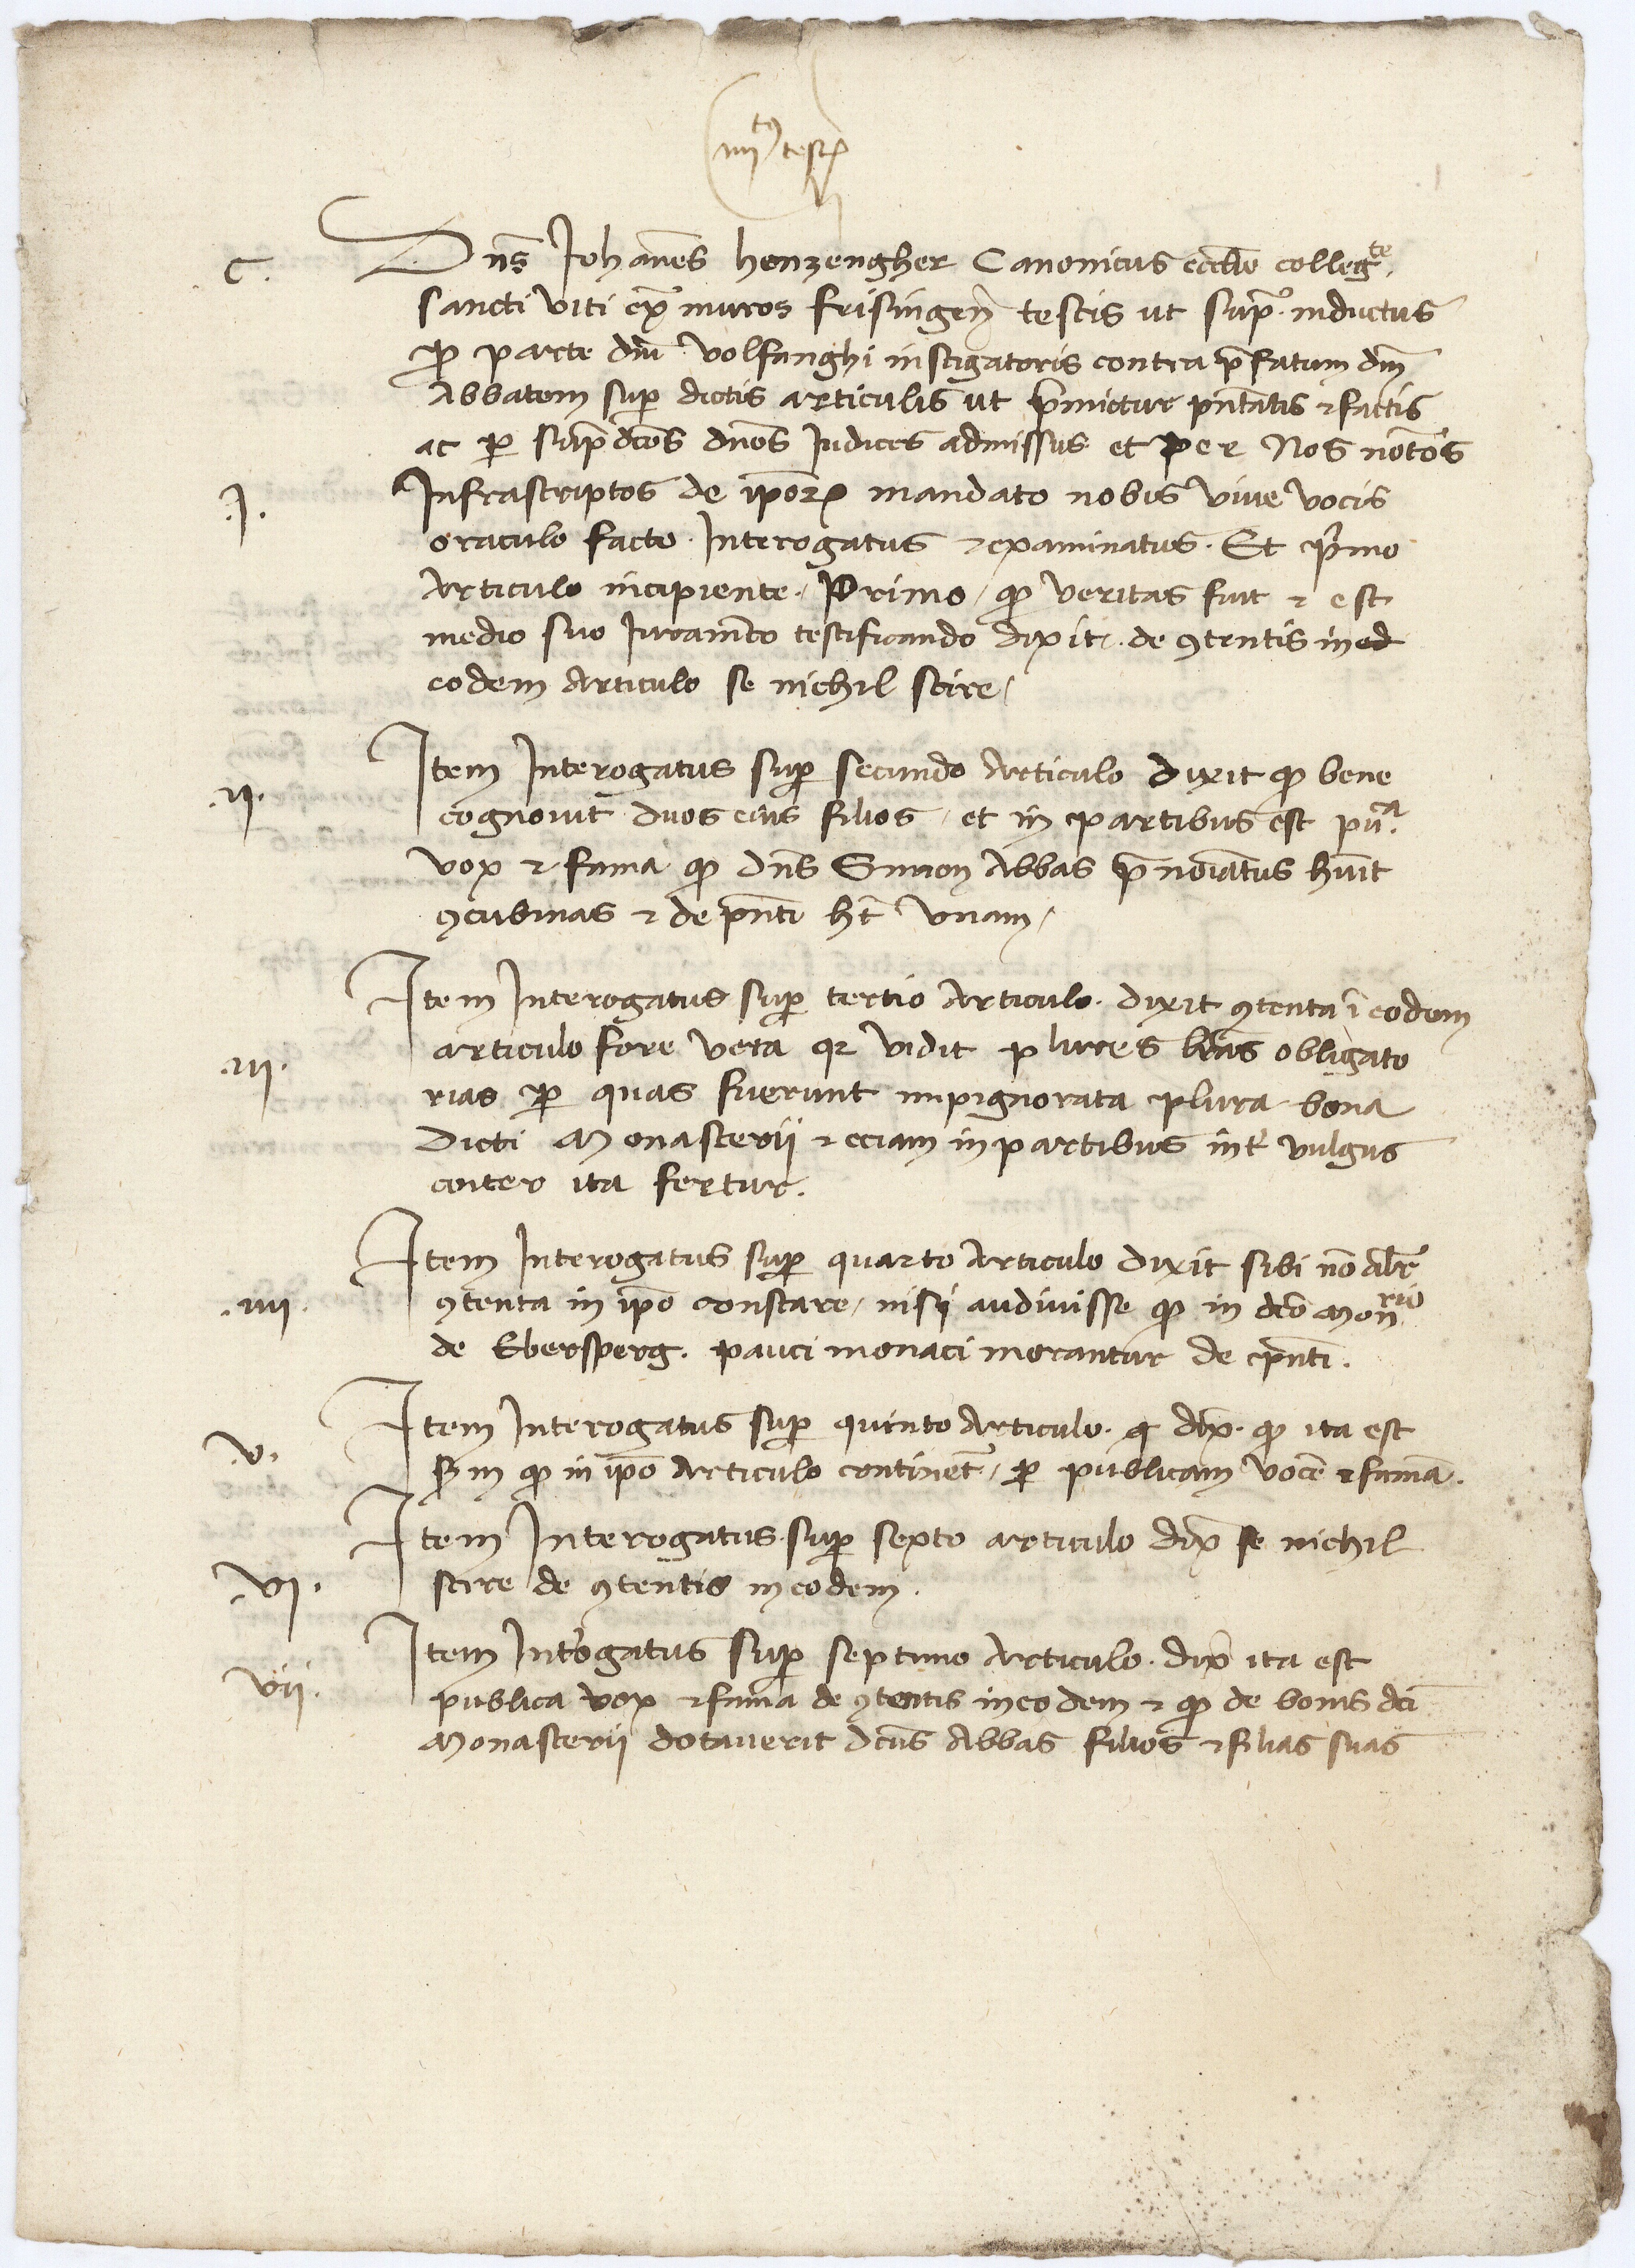 iiijtus testis
C. Dns Johanes henzengher Canonicus eccelie collegte
sancti viti ex muros frisingen testis ut supra inductus
pro parte dni volfanghi instigatoris contra prefatum dnm
Abbatem super dictis articulis ut premictitur pntatis & factis
ac per supradcos dnos Judices admissus et per Nos notos
.I. Infrascriptos de ipor mandato nobis vive vocis
oraculo facto. Interogatus & examinatus. Et primo
Articulo incipiente. Primo / quod veritas fuit & est
medio suo Juramento testificando dixit. de contentis in ed
eodem Articulo se nichil scire /
.ij. Item Interogatus super secundo Articulo dixit quod bene
cognovit duos eius filios / et in partibus est puca
vox & fama quod dns Simon Abbas prenoiatus huit
concubinas & de pnti ht vnam /
.iij. Item Interogatus super tertio Articulo. dixit contenta i eodem
articulo fore vera quia vidit plures lras obligato
rias per quas fuerunt impignorata plura bona
dicti Monasterij & eciam in partibus inter vulgus
coiter ita fertur.
.iiij. Item Interogatus super quarto Articulo dixit sibi non alr
contenta in ipo constare / nisi audivisse quod in dco monrio
de Ebersperg. pauci monaci morantur de pnti.
.v. Item Interogatus super quinto Articulo. dix. quod ita est
prout in ipo Articulo continet / per publicam voce & fama.
.vi. Item Interogatus super sexto articulo dix se nichil
scire de contentis in eodem.
vii. Item Interogatus super septimo Articulo. dix ita est
publica vox & fama de contentis in eodem & quod de bonis dci
Monasterij dotaverit dcus Abbas filios & filias suas